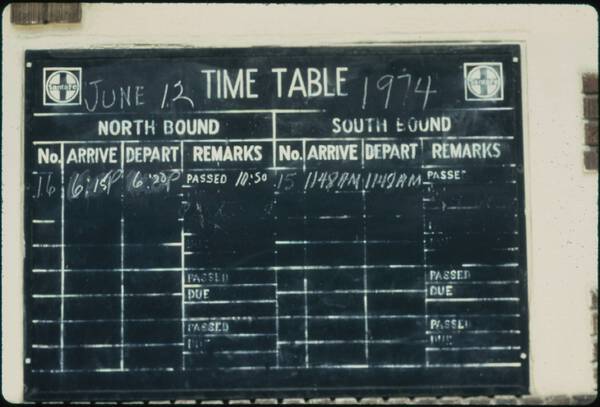 Santa Fe JUNE 12 TIME TABLE 1974 Santa Fe
NORTH BOUND SOUTH BOUND
No. ARRIVE DEPART REMARKS No. ARRIVE DEPART REMARKS
16 6:15P 6:20P PASSED 10:50 15 1148AM 1149AM PASSED
DUE
PASSED PASSED
DUE DUE
PASSED PASSED
DUE DUE